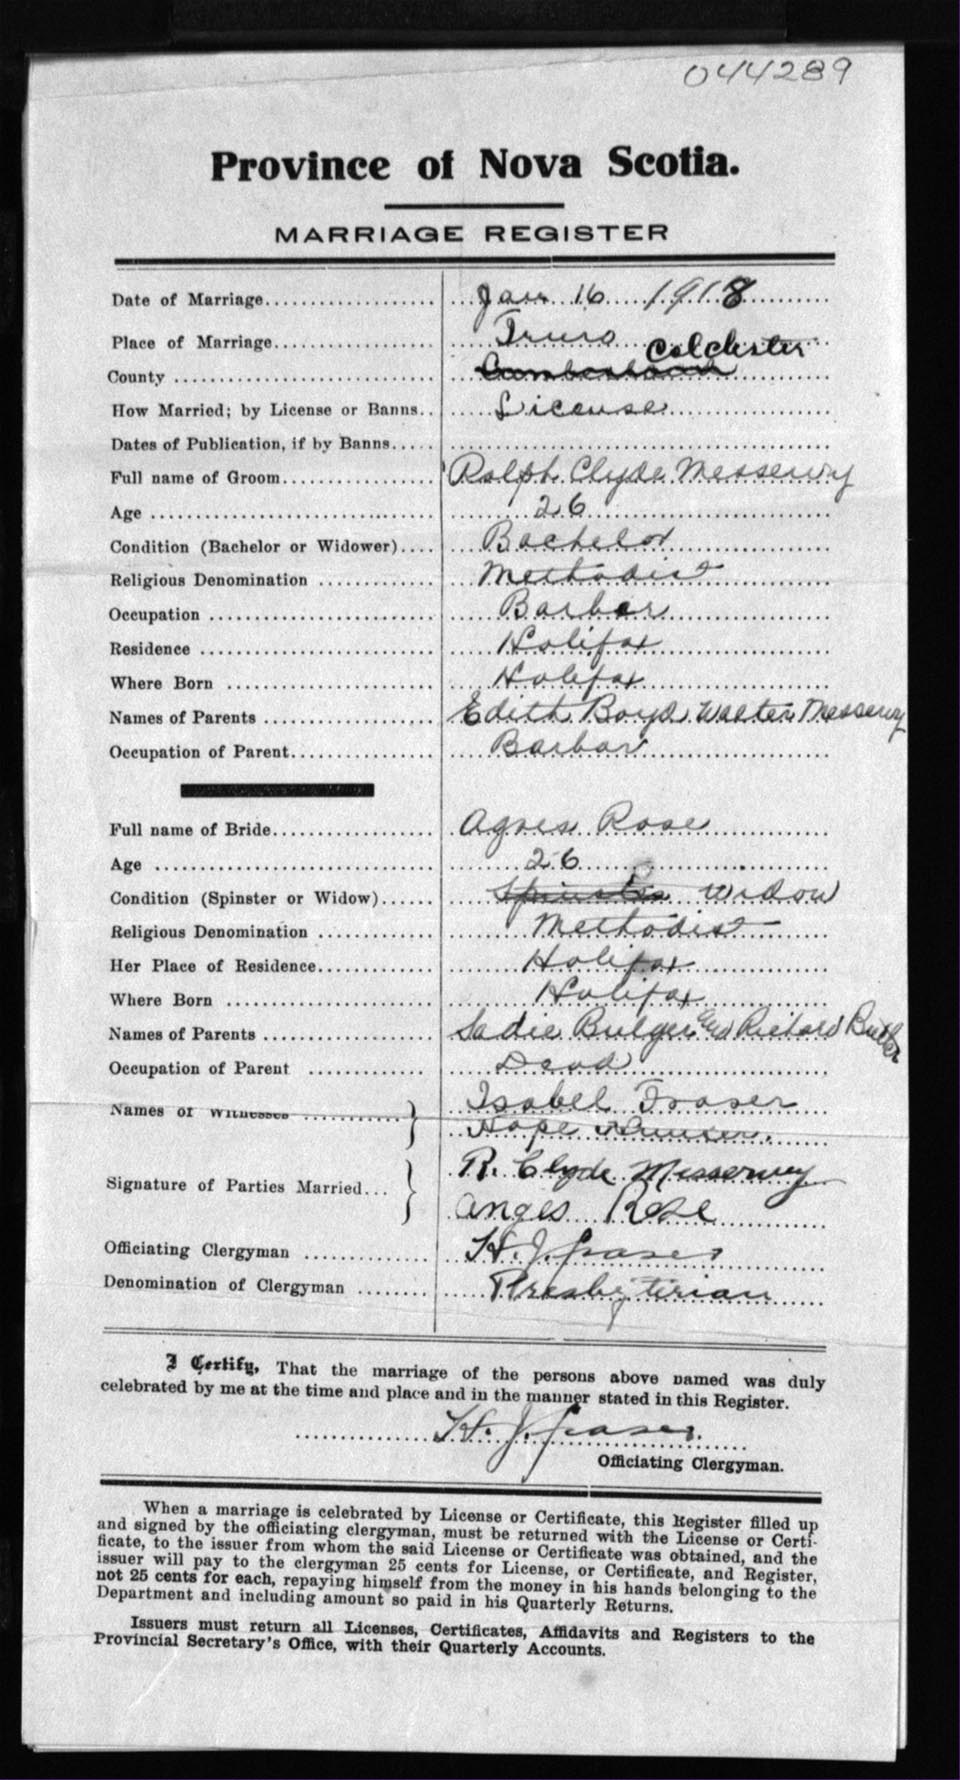 044289
Province of Nova Scotia.
MARRIAGE REGISTER
Date of Marriage.................... Jan 16 1918
Place of Marriage................... Truro
Colchester
County ..............................
How Married; by License or Banns.. License
Dates of Publication, if by Banns.....
Full name of Groom.................. Ralph Clyde Messervy
Age ................................. 26
Condition (Bachelor or Widower).... Bachelor
Religious Denomination ............. Methodist
Occupation .......................... Barber
Residence ........................... Halifax
Where Born ........................ Halifax
Names of Parents .................. Edith Boyd Walter Messervy
Occupation of Parent............... Barbar
Full name of Bride................... Agnes Rose
Age ................................. 26
Condition (Spinster or Widow)...... Spinster Widow
Religious Denomination ............. Methodist
Her Place of Residence............. Halifax
Where Born ........................ Halifax
Names of Parents .................. Sadie Bulger and Richard Butler
Occupation of Parent ............. Dead
Names of Witnesses ............. Isabel Fraser
Hope
Signature of Parties Married... R. Clyde Messervey
Anges Rose
Officiating Clergyman ............. H. J. Fraser
Denomination of Clergyman ........ Presbyterian
I Certify, That the marriage of the persons above named was duly
celebrated by me at the time and place and in the manner stated in this Register.
H. J. Fraser.
Officiating Clergyman.
When a marriage is celebrated by License or Certificate, this Register filled up
and signed by the officiating clergyman, must be returned with the License or Certi-
ficate, to the issuer from whom the said License or Certificate was obtained, and the
issuer will pay to the clergyman 25 cents for License, or Certificate, and Register,
not 25 cents for each, repaying himself from the money in his hands belonging to the
Department and including amount so paid in his Quarterly Returns.
Issuers must return all Licenses, Certificates, Affidavits and Registers to the
Provincial Secretary's Office, with their Quarterly Accounts.